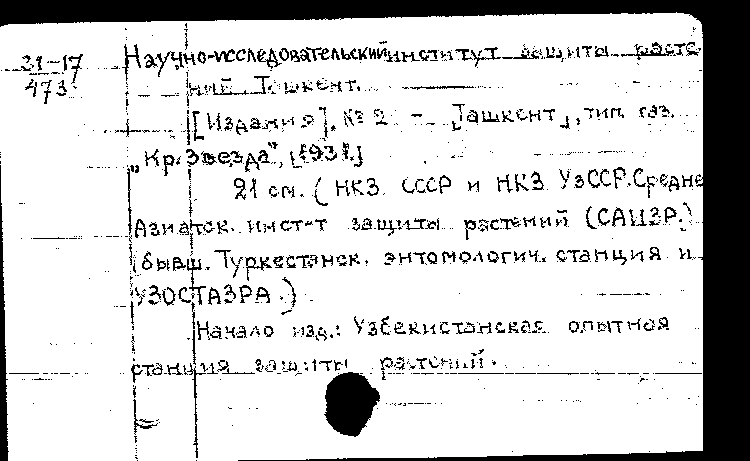 31-17
473
Научно-исследовательский институт защиты расте-
ний Ташкент.
[Издания]. № 2 - [Ташкент], тип. газ.
„Кр. Звезда", [1931.]
21 см. (НКЗ СССР и НКЗ УзССР. Средне
Азиатск. инст-т защиты растений (САИЗР.)
(бывш. Туркестанск. энтомологич. станция и
УЗОСТАЗРА.)
Начало изд.: Узбекистанская опытная
станция защиты растений.